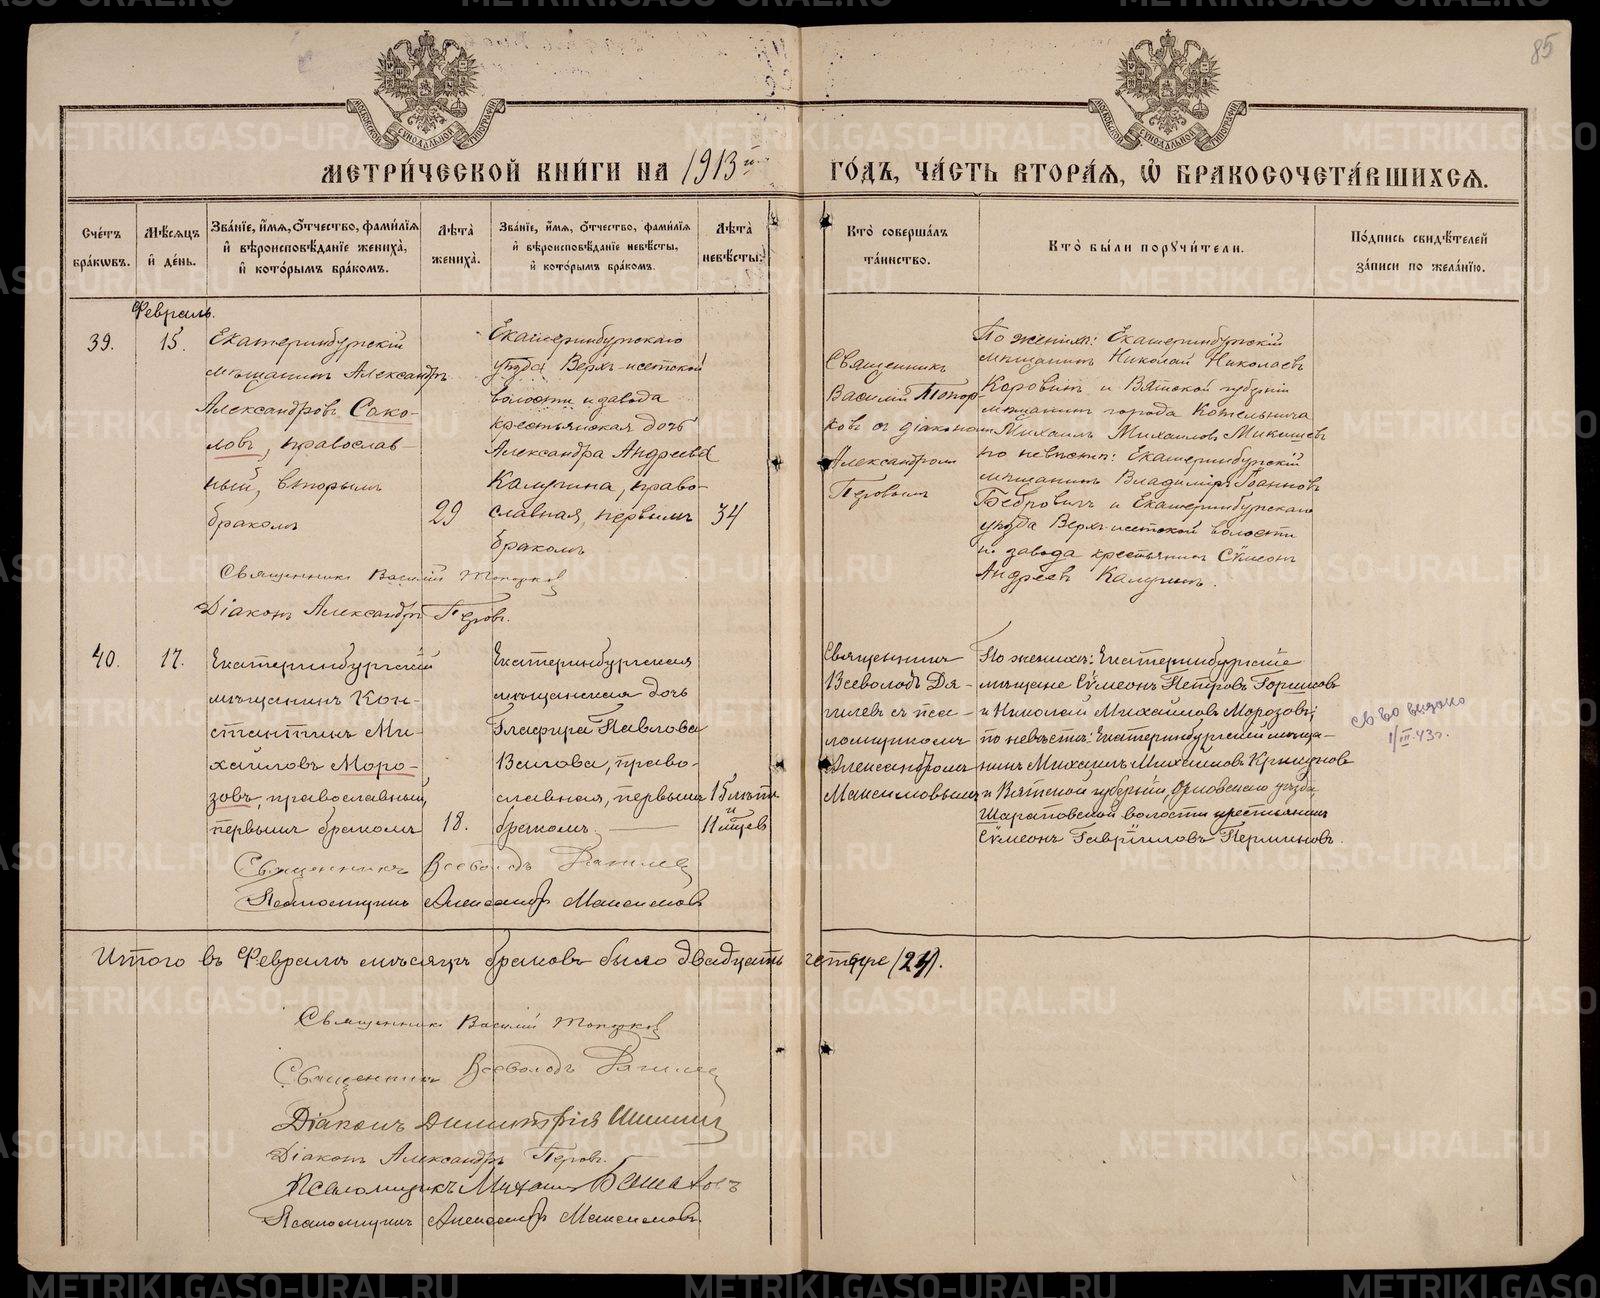 85
МЕТРИ́ЧЕСКОЙ КНИ́ГИ НА 1913 й
ГО́ДЪ, ЧА́СТЬ ВТОРА́Я, Ѡ҆ БРАКОСОЧЕТА́ВШИХСЯ.
Сче́тъ бра́кѡвъ.
Мѣ́сяцъ и҆ де́нь.
Зва́нїе, и҆́мѧ, ѻ҆́тчество, фами́лїѧ и҆ вѣроисповѣ́данїе жениха̀, и҆ кото́рымъ бра́комъ.
Лѣ́та жениха̀.
Зва́нїе, и҆́мѧ, ѻ҆́тчество, фами́лїѧ и҆ вѣроисповѣ́данїе невѣ́сты, и҆ кото́рымъ бра́комъ.
Лѣ́та невѣ́сты.
Кто̀ соверша́лъ та́инство.
Кто̀ бы́ли поручи́тели.
По́дпись свидѣ́телей за́писи по жела́нїю.
Февраль.
39.
15.
Екатеринбургскій
мѣщанинъ Александръ
Александровъ Соко-
ловъ, православ-
ный, вторымъ
бракомъ
29
Екатеринбургскаго
уѣзда Верхъ-исетской
волости и завода
крестьянская дочь
Александра Андреева
Калугина, право-
славная, первымъ
бракомъ
34
Священникъ
Василій Топор-
ковъ съ діакономъ
Александромъ
Перовымъ
По женихѣ: Екатеринбургскій
мѣщанинъ Николай Николаевъ
Коровинъ и Вятской губерніи
мѣщанинъ города Котельнича
Михаилъ Михаиловъ Микишевъ
по невѣстѣ: Екатеринбургскій
мѣщанинъ Владиміръ Іоанновъ
Бобровичъ и Екатеринбургскаго
уѣзда Верхъ-исетской волости
и завода крестьянинъ Сѵмеонъ
Андреевъ Калугинъ.
Священникъ Василій Топорков
Діаконъ Александръ Перовъ.
40.
17.
Екатеринбургскій
мѣщанинъ Кон-
стантинъ Ми-
хаиловъ Моро-
зовъ, православный,
первымъ бракомъ
18.
Екатеринбургская
мѣщанская дочь
Глафира Павлова
Ваглова, право-
славная, первымъ
бракомъ
15 лѣтъ
и
11 мѣсяцев
Священникъ
Всеволодъ Дя-
гилевъ съ пса-
ломщикомъ
Александромъ
Максимовымъ
По женихѣ: Екатеринбургскіе
мѣщане Сѵмеонъ Петровъ Горшковъ
и Николай Михаиловъ Морозовъ;
по невѣстѣ: Екатеринбургскій мѣща-
нинъ Михаилъ Михаиловъ
и Вятской губерніи, Орловскаго уѣзда,
Шараповской волости крестьянинъ
Сѵмеонъ Гавріиловъ Перминовъ.
св-во выдано
1/III-43г.
Священникъ Всеволодъ Дягилев
Псаломщикъ Александръ Максимовъ
Итого въ Февралѣ мѣсяцѣ браковъ было двадцать четыре (24).
Священникъ Василій Топорков
Священникъ Всеволодъ Дягилев
Діаконъ Димитрій Шишин
Діаконъ Александръ Перовъ.
Псаломщикъ Михаилъ
Псаломщикъ Александръ Максимовъ.
METRIKI.GASO-URAL.RU